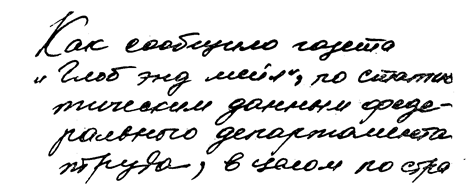 Как сообщило газета
"Глоб энд мейл", по статис
тическим данным феде-
рального департамента
труда, в целом по стра